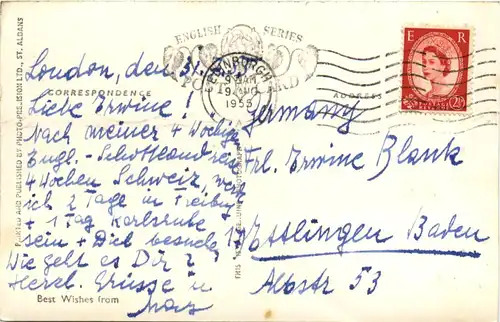 ENGLISH SERIES
London, den 31.
POST CARD
CORRESPONDENCE
ADDRESS
EDINBURGH
9 AUG
1955
E R
POSTAGE REVENUE
2½D
Liebe Erwine!
Nach meiner 4 Wochigen
Engl.-Schottlandreise
4 Wochen Schweiz, werde
ich 2 Tage in Freiburg
+ 1 Tag Karlsruhe
sein + Dich besuchen
Wie geht es Dir?
Herzl. Grüsse in
Best Wishes from
Germany
Frl. Erwine Blank
Ettlingen Baden
Albstr 53
PRINTED AND PUBLISHED BY PHOTO-PRECISION LTD., ST. ALBANS